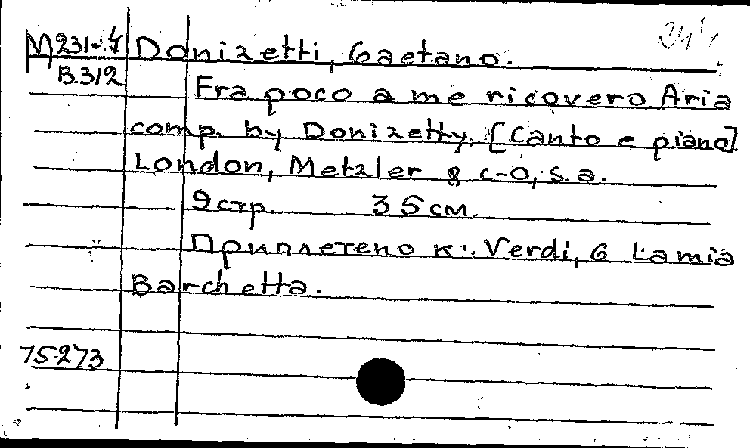 М231-4 Donizetti, Gaetano.
В.312
Fra poco a me ricovero Aria
comp. by Donizetty. [Canto e piano]
London, Metzler & c-o, s.a.
9 стр. 35 см.
Приплетено к: Verdi, G La mia
Barchetta.
75-273